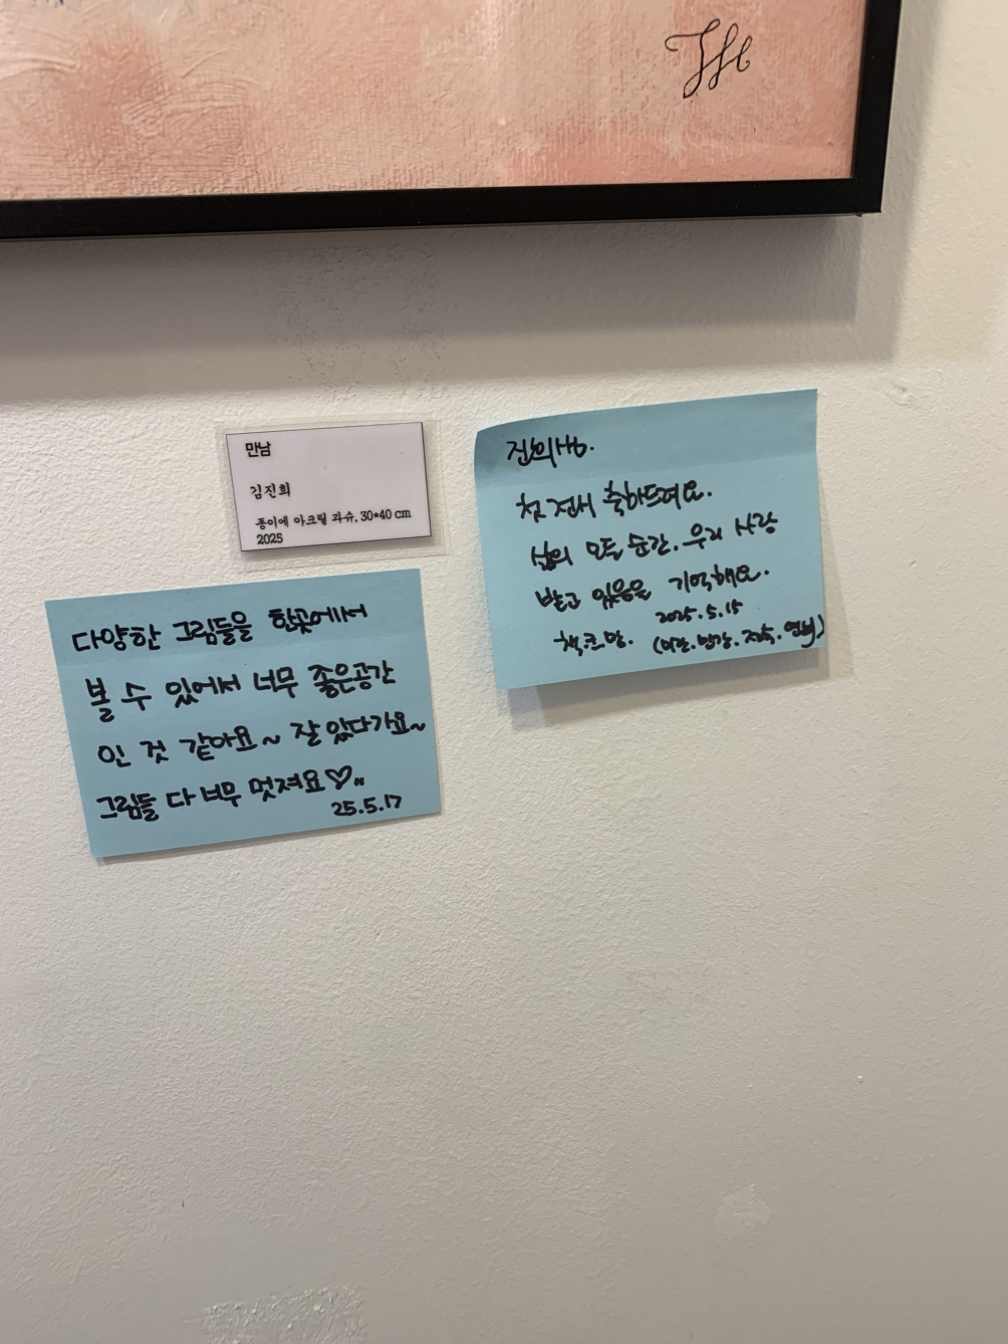 만남
김진희
종이에 아크릴 과슈, 30*40 cm
2025
진희님.
첫 전시 축하드려요.
삶의 모든 순간. 우리 사랑
받고 있음을 기억해요.
2025. 5. 15
책.크.맘.
다양한 그림들을 한곳에서
볼 수 있어서 너무 좋은공간
인 것 같아요~ 잘 있다가요~
그림들 다 너무 멋져요♡
25.5.17